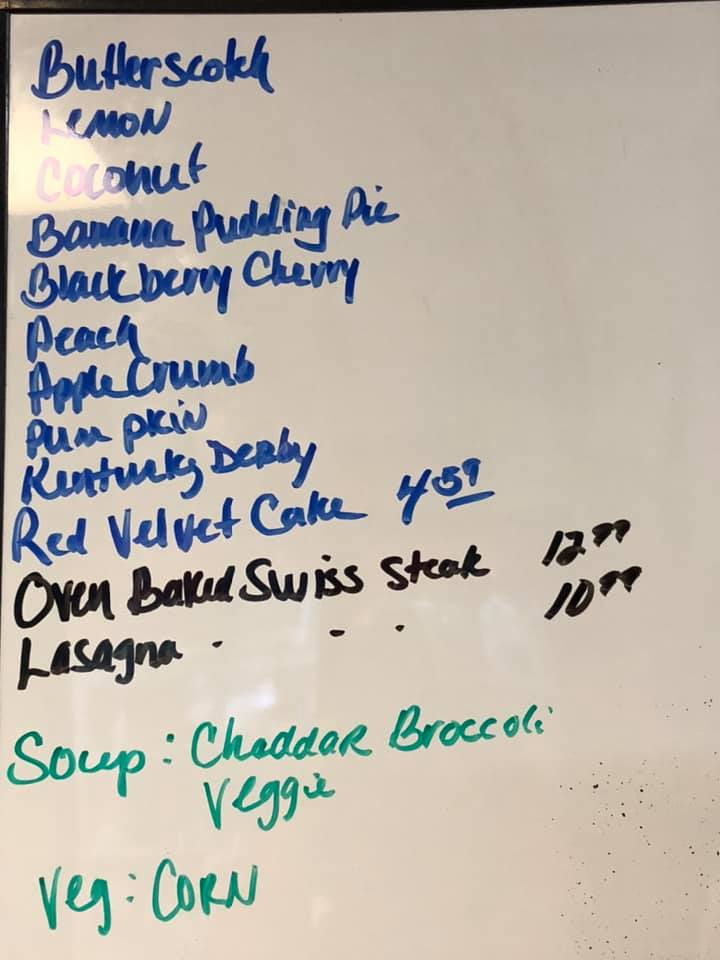 Butterscotch
Lemon
Coconut
Banana Pudding Pie
Blackberry Cherry
Peach
Apple Crumb
Pumpkin
Kentucky Derby
Red Velvet Cake 4.59
Oven Baked Swiss Steak 12.99
Lasagna . - . 10.99
Soup: Cheddar Broccoli
Veggie
Veg: CORN